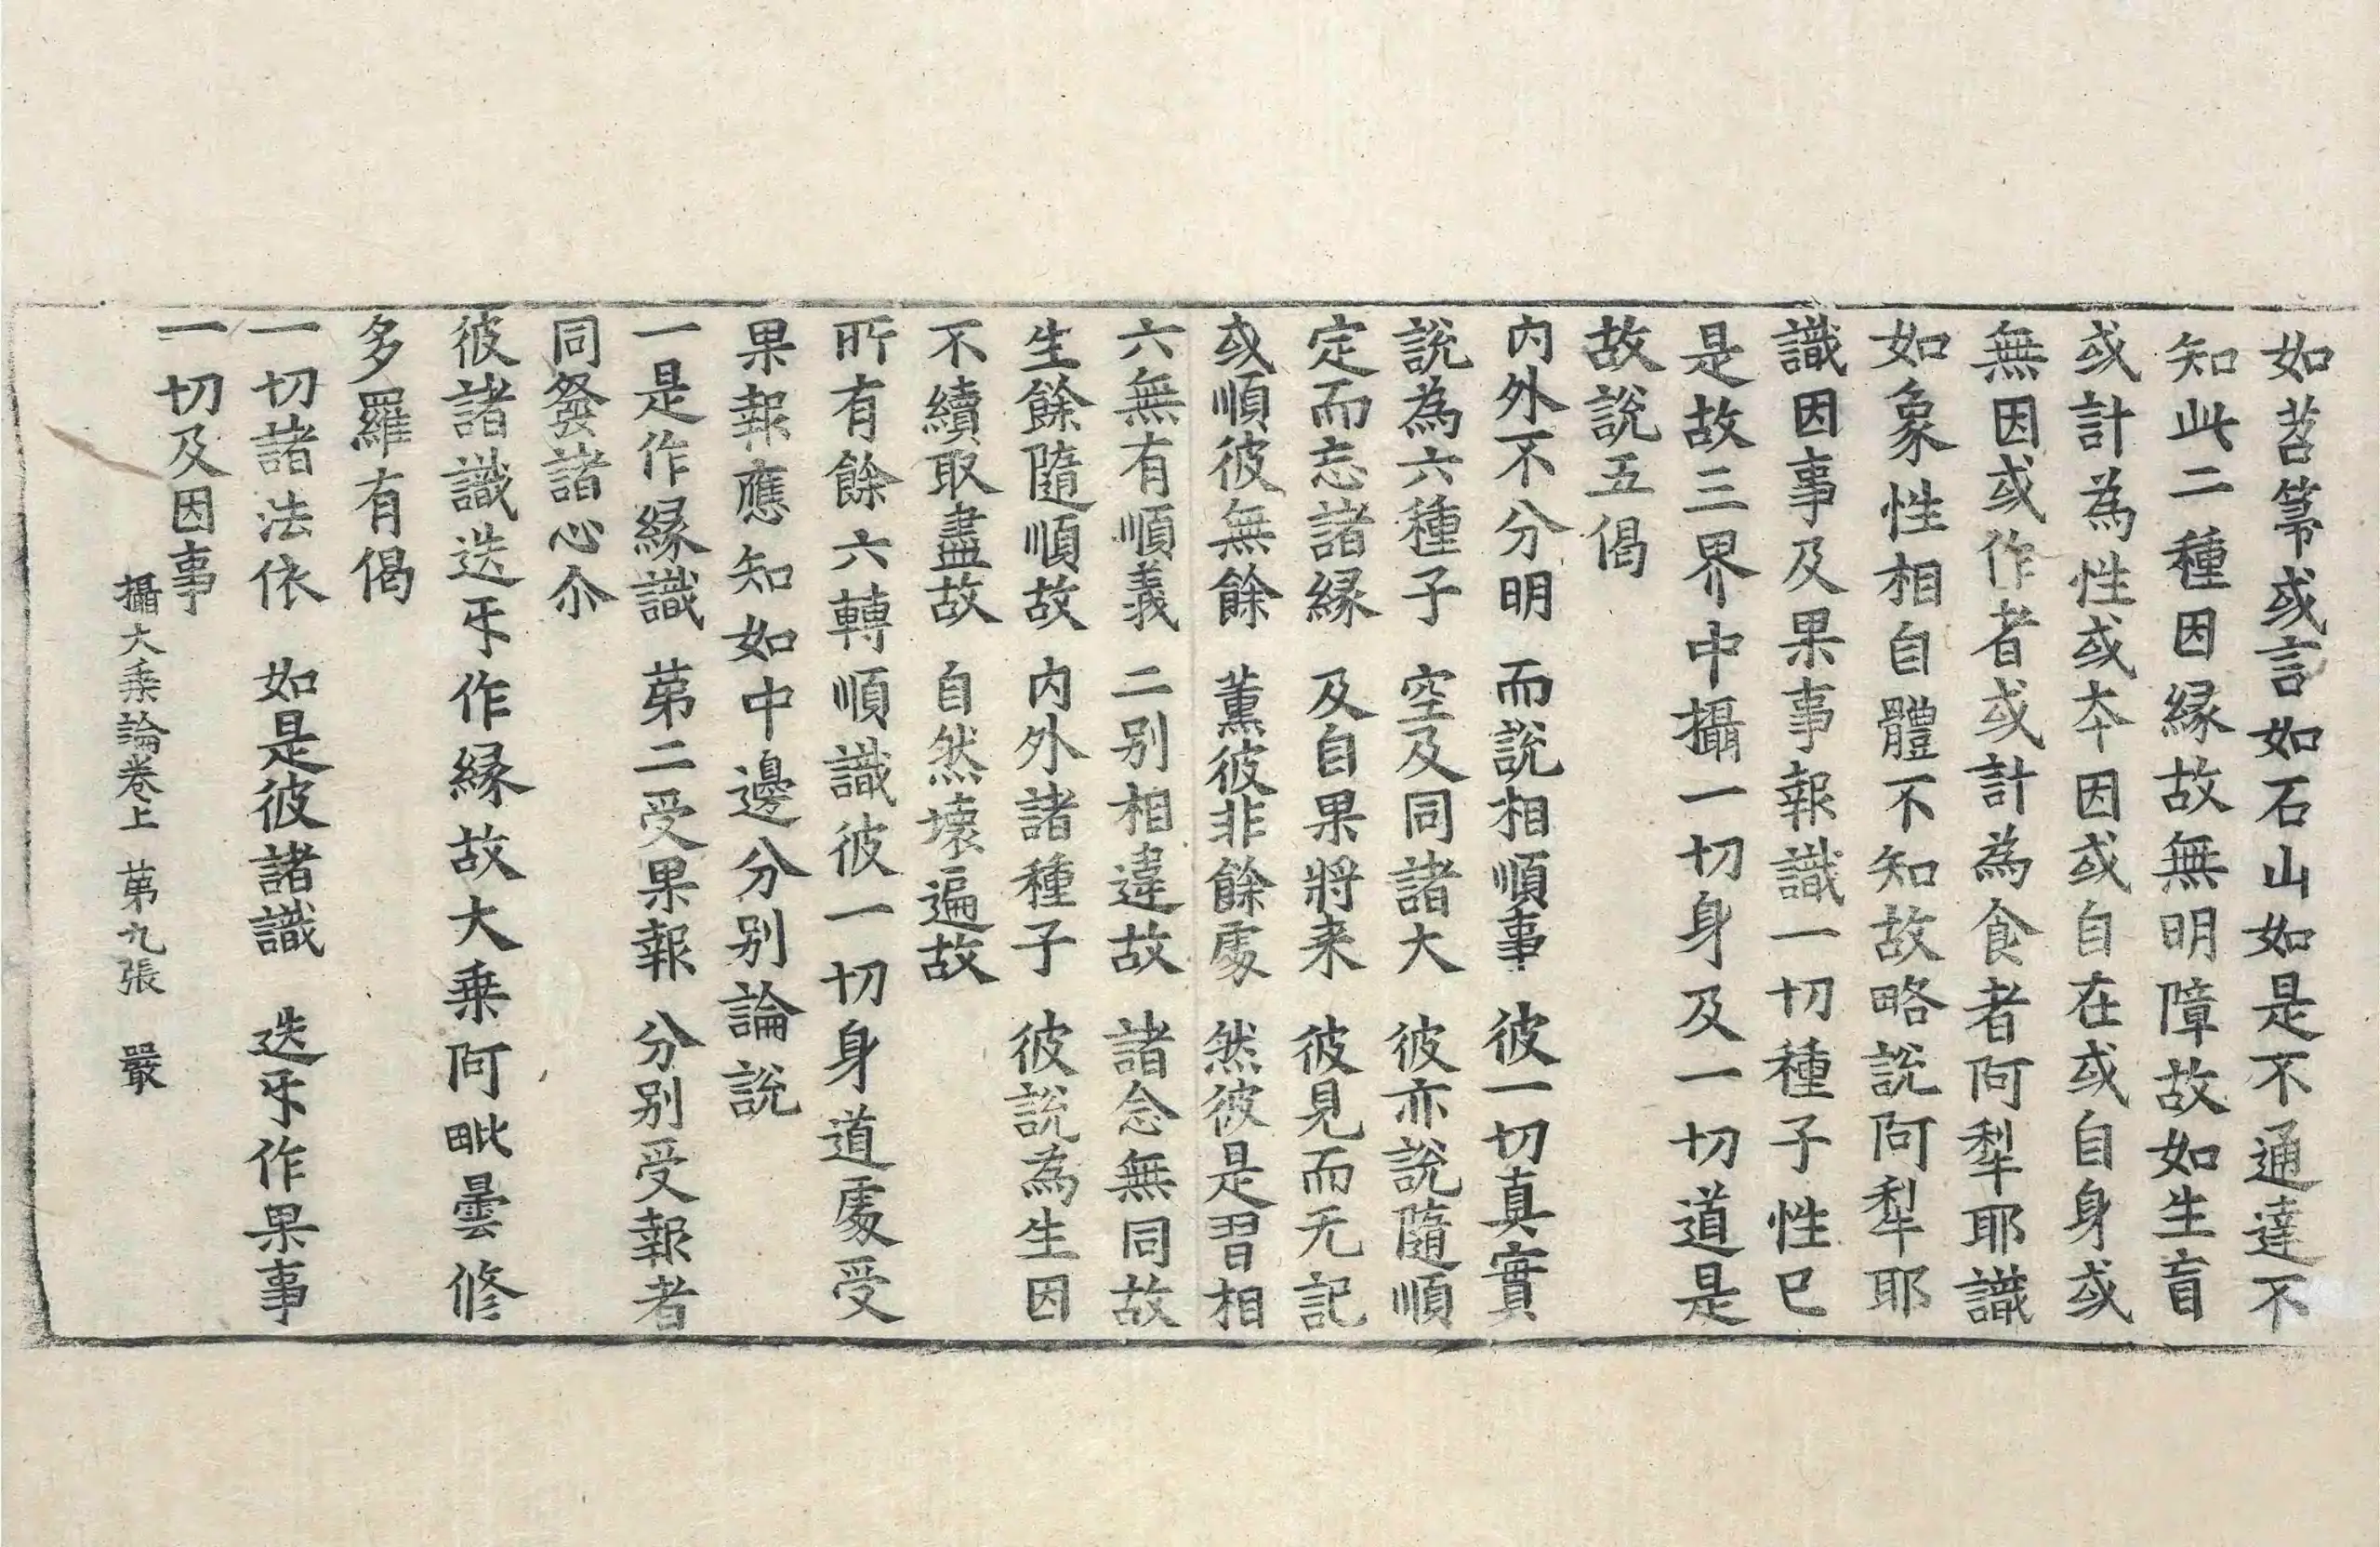 如苕箒或言如石山如是不通達不
知此二種因緣故無明障故如生盲
或計為性或夲因或自在或自身或
無因或作者或計為食者阿犁耶識
如象性相自體不知故略說阿犁耶
識因事及果事報識一切種子性已
是故三界中攝一切身及一切道是
故說五偈
內外不分明　而說相順事　彼一切真實
說為六種子　空及同諸大　彼亦說隨順
定而忘諸緣　及自果將来　彼見而无記
或順彼無餘　薰彼非餘處　然彼是習相
六無有順義　二別相違故　諸念無同故
生餘隨順故　內外諸種子　彼說為生因
不續取盡故　自然壞遍故
所有餘六轉順識彼一切身道處受
果報應知如中邊分別論說
一是作緣識　苐二受果報　分別受報者
同發諸心尒
彼諸識迭㸦作緣故大乗阿毗曇修
多羅有偈
一切諸法依　如是彼諸識　迭㸦作果事
一切及因事
攝大乗論卷上　苐九張　嚴